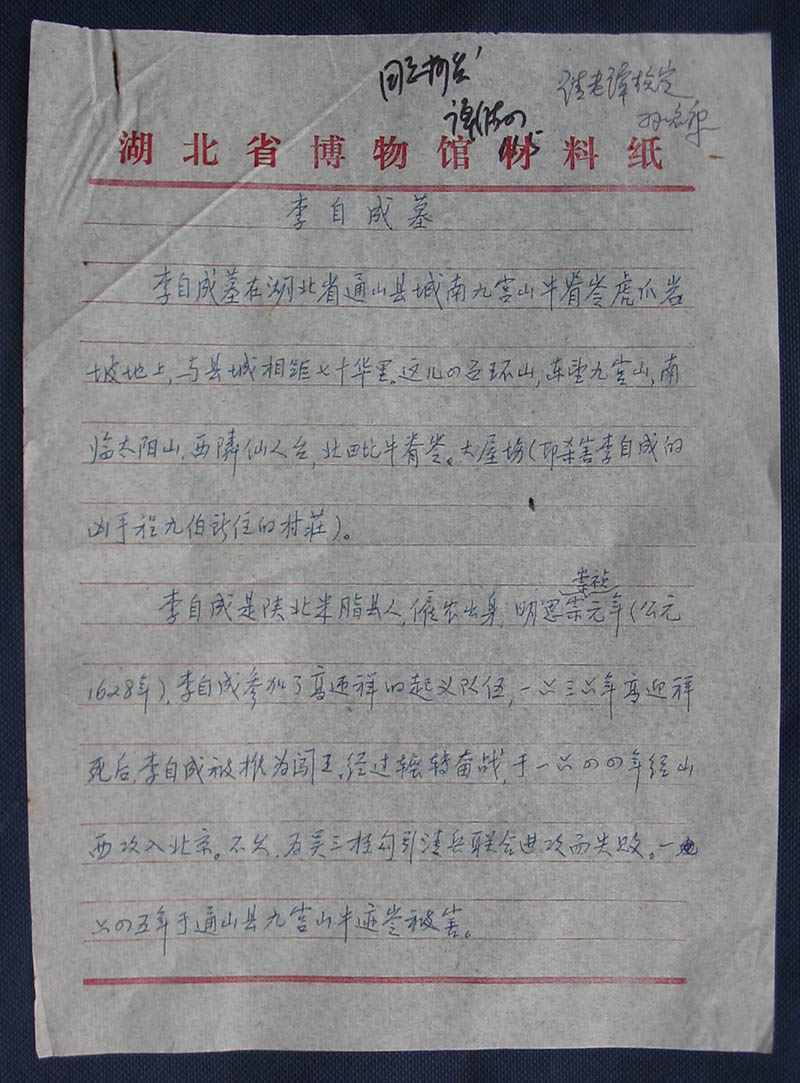 请老谭核定
湖北省博物馆材料纸
李自成墓
李自成墓在湖北省通山县城南九宫山牛脊岺虎爪岩
坡地上,与县城相距七十华里。这儿四面环山,东望九宫山,南
临太阳山,西隣仙人台,北毗牛脊岺。大屋場(即杀害李自成的
凶手程九伯所住的村莊)。
崇祯
李自成是陕北米脂县人,僱农出身,明思宗元年(公元
1628年),李自成参加了高迎祥的起义队伍,一六三六年高迎祥
死后,李自成被推为闯王。经过辗转奋战,于一六四四年经山
西攻入北京。不久,为吴三桂勾引清兵联合进攻而失败。一
六四五年于通山县九宫山牛迹岺被害。